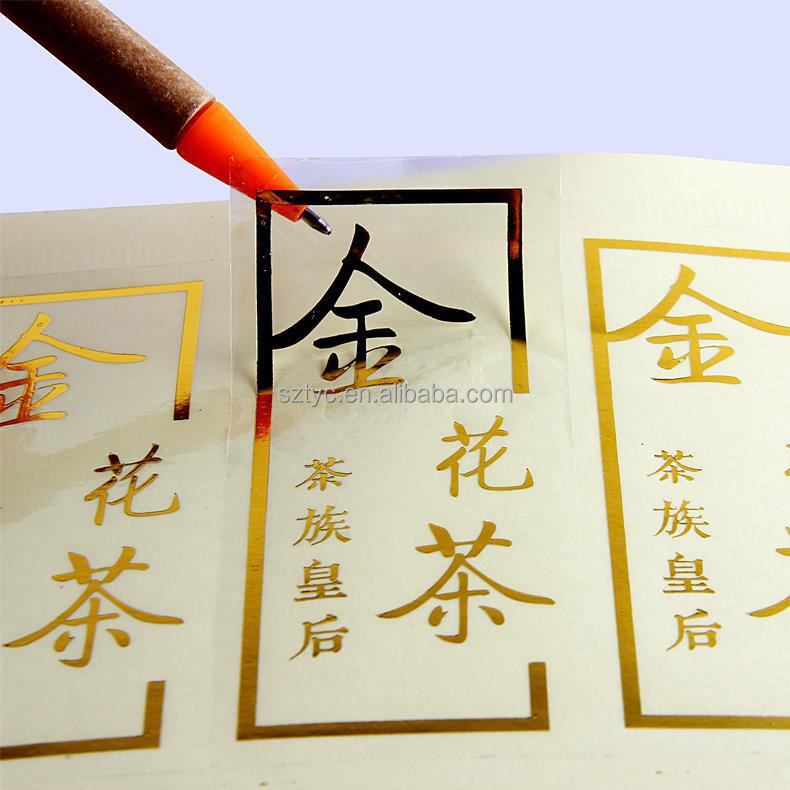 金花茶
金花茶
茶族皇后
金
茶族皇后
sztyc.en.alibaba.com